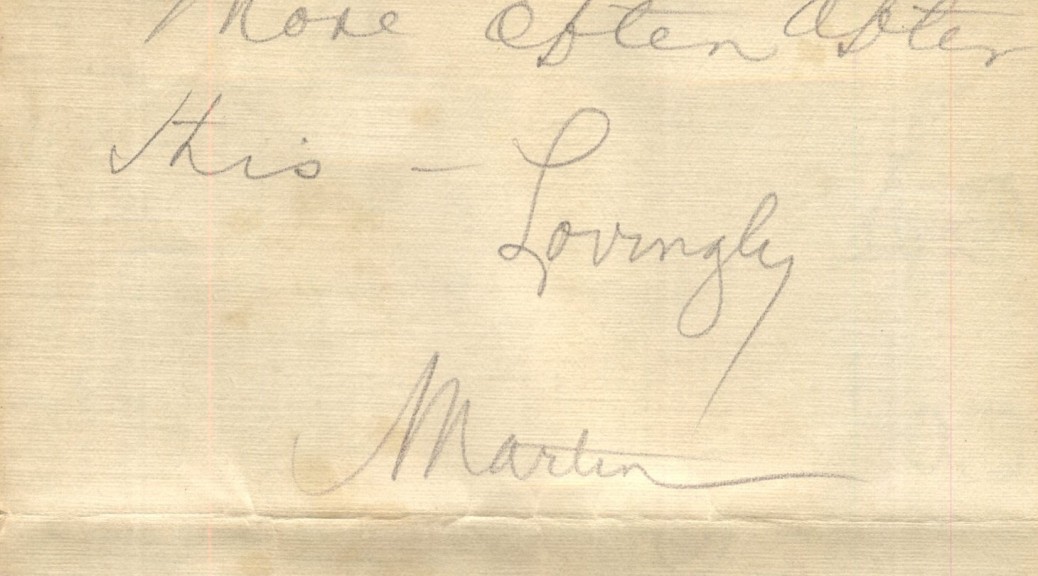 more often after
this – Lovingly
Martin